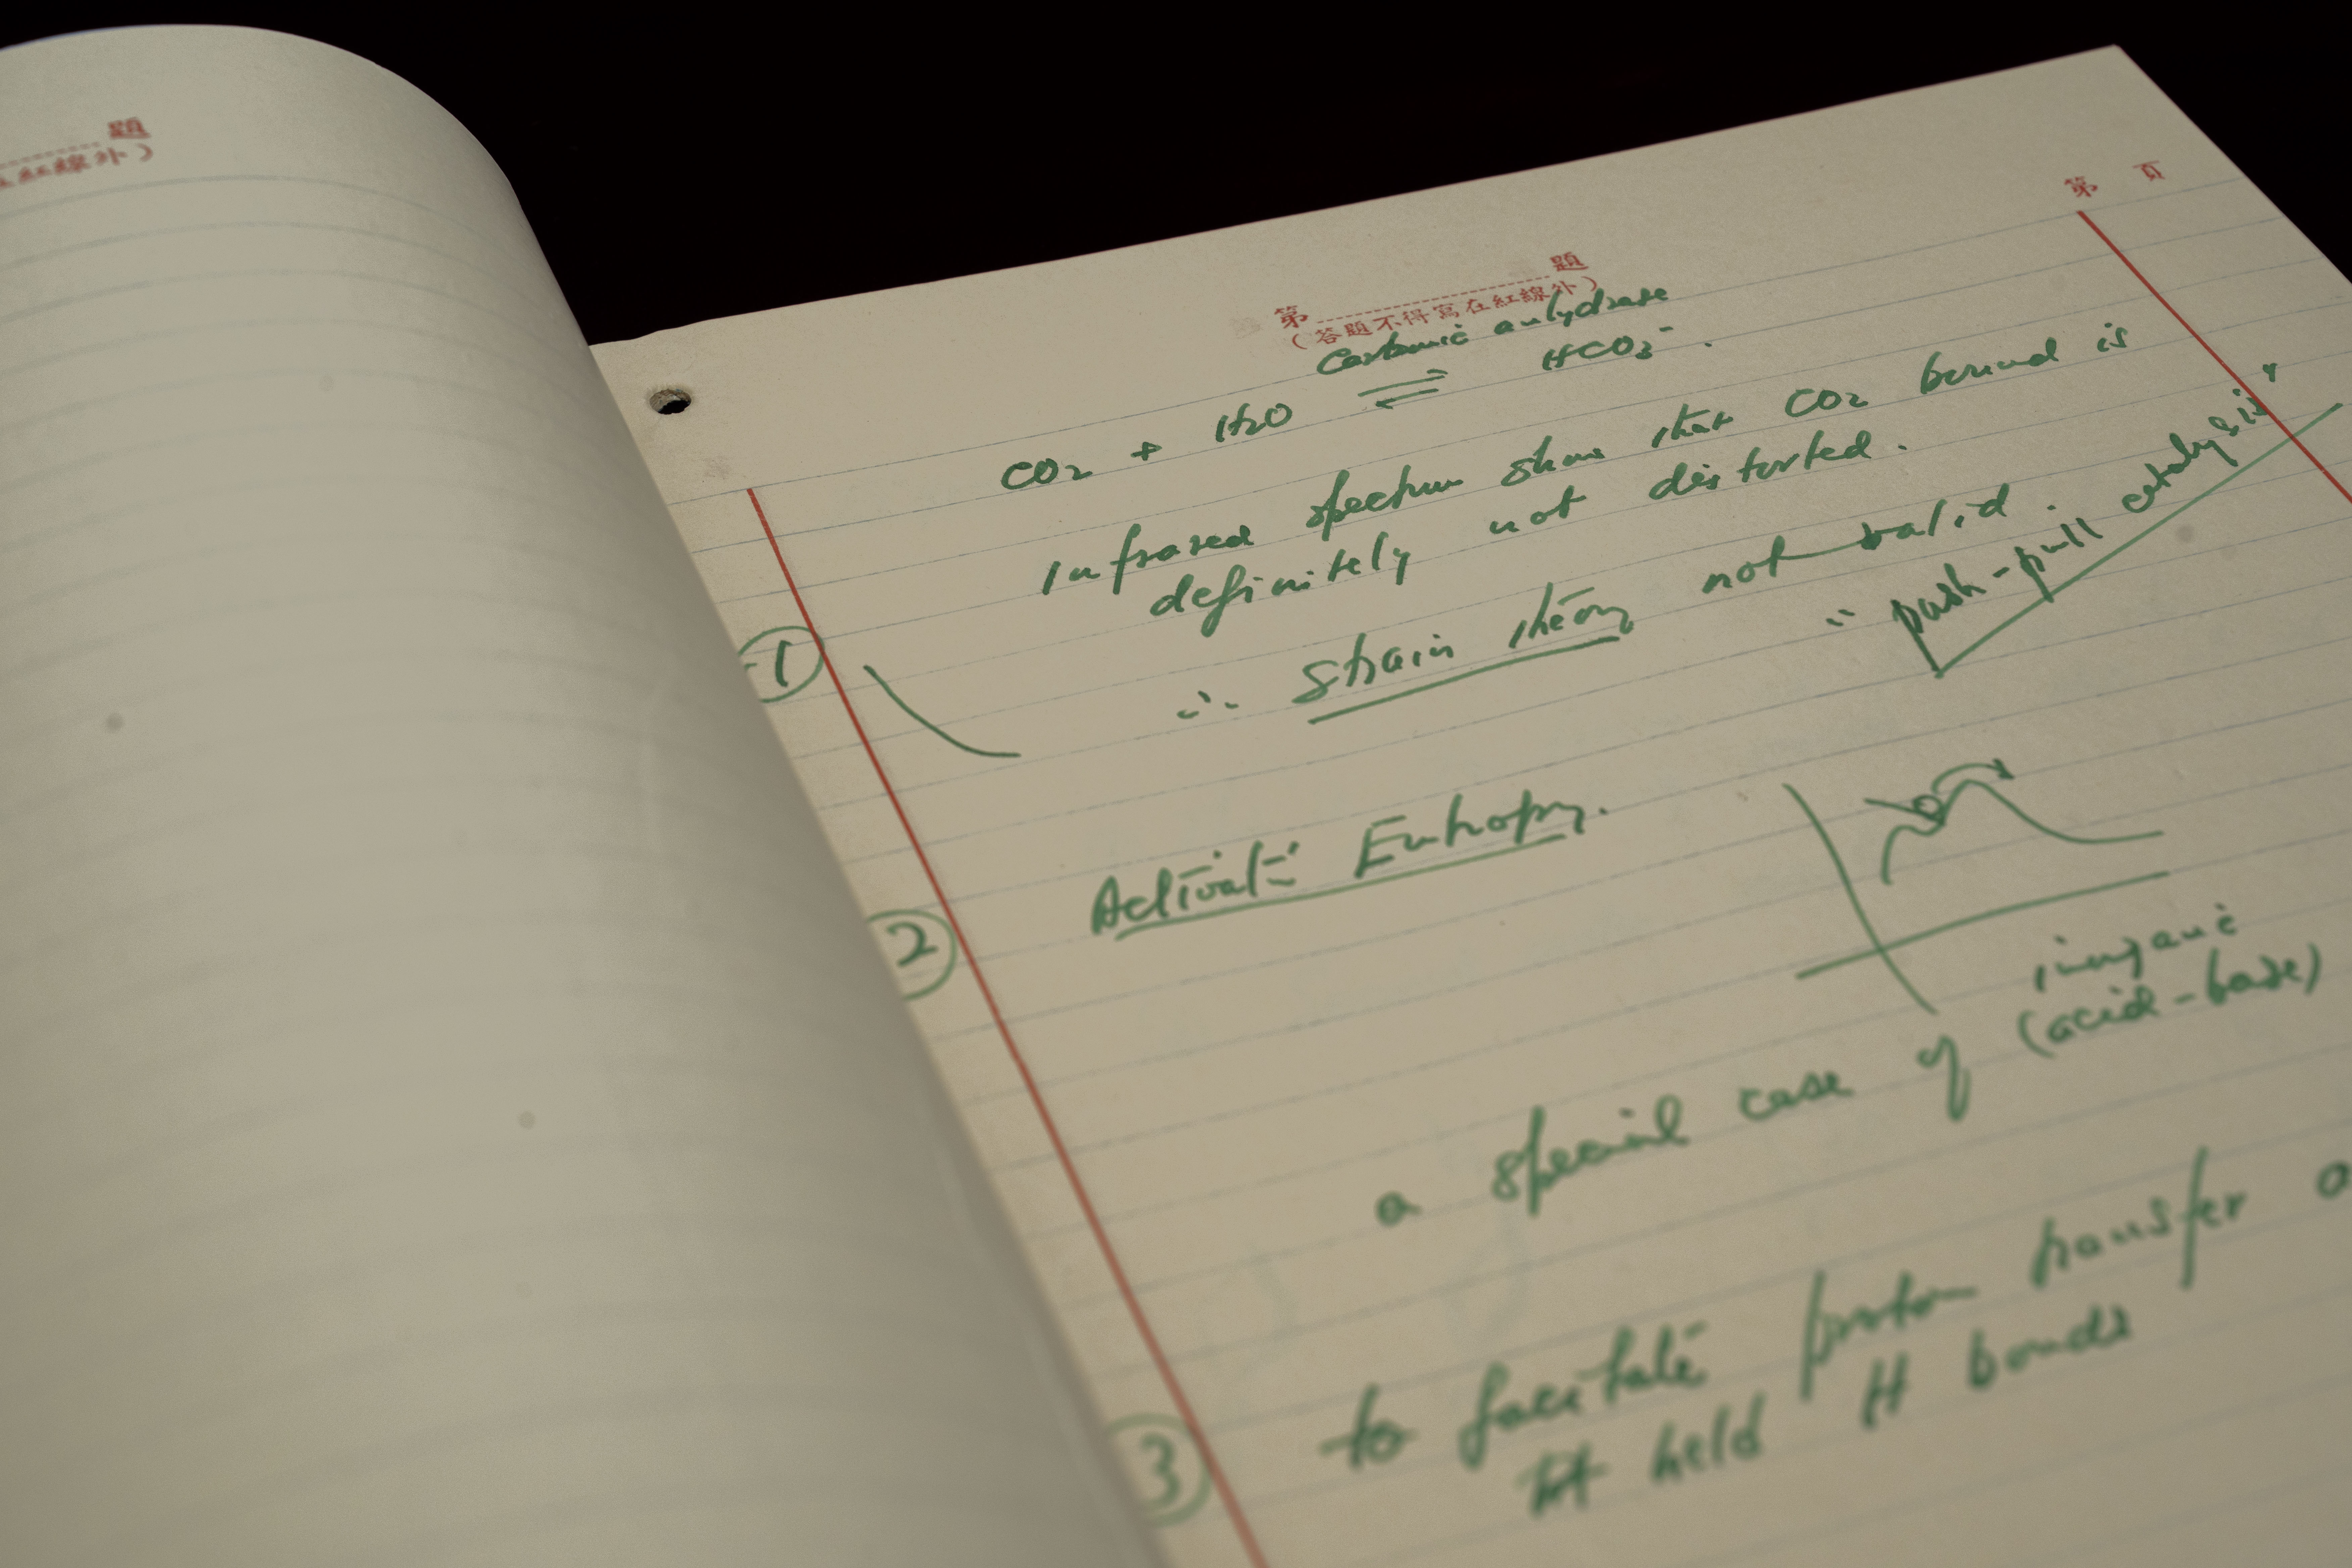 題
在紅線外）
第 頁
第 題
（答題不得寫在紅線外）
Carbonic anhydrase
CO₂ + H₂O ⇌ HCO₃⁻.
Infrared spectrum show that CO₂ bound is
definitely not distorted.
① ∴ strain theory not valid.
"push-pull catalysis"
② Activat Entropy.
inorganic
a special case of (acid-base)
③ to facilitate proton transfer
held H bonds